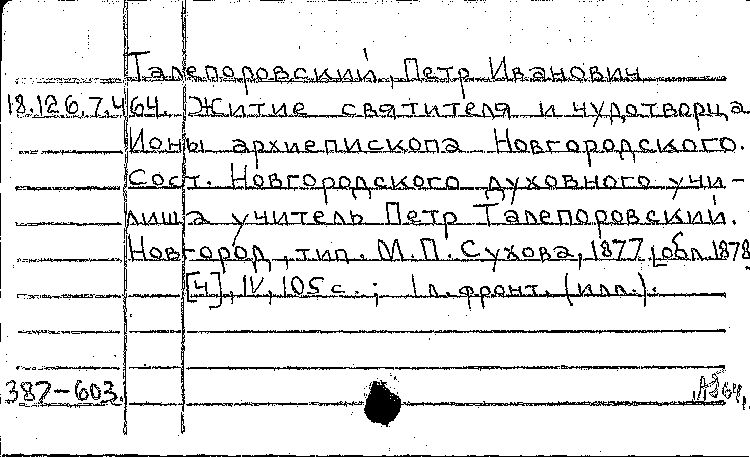 Талепоровский, Петр Иванович
18.126.7.464. Житие святителя и чудотворца
Ионы архиепископа Новгородского.
Сост. Новгородского духовного учи-
лища учитель Петр Талепоровский.
Новгород, тип. М.П. Сухова, 1877 [обл. 1878
[4], IV, 105 с.; 1 л. фронт. (илл.).
387-603.